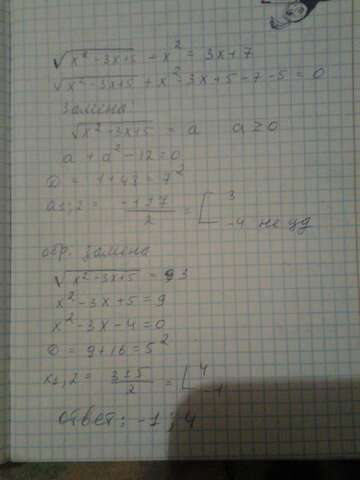 √x²-3x+5 + x² = 3x+7
√x²-3x+5 + x²-3x+5-7-5=0
Замена:
√x²-3x+5 = a   a≥0
a + a² - 12 = 0
D = 1+48 = 7²
a1;2 = -1±7/2 = [ 3 -4 не уд
обр. замена
√x²-3x+5 = 3
x²-3x+5=9
x²-3x-4=0
D = 9+16=5²
x1;2 = 3±5/2 = [ 4 -1
ответ: -1; 4